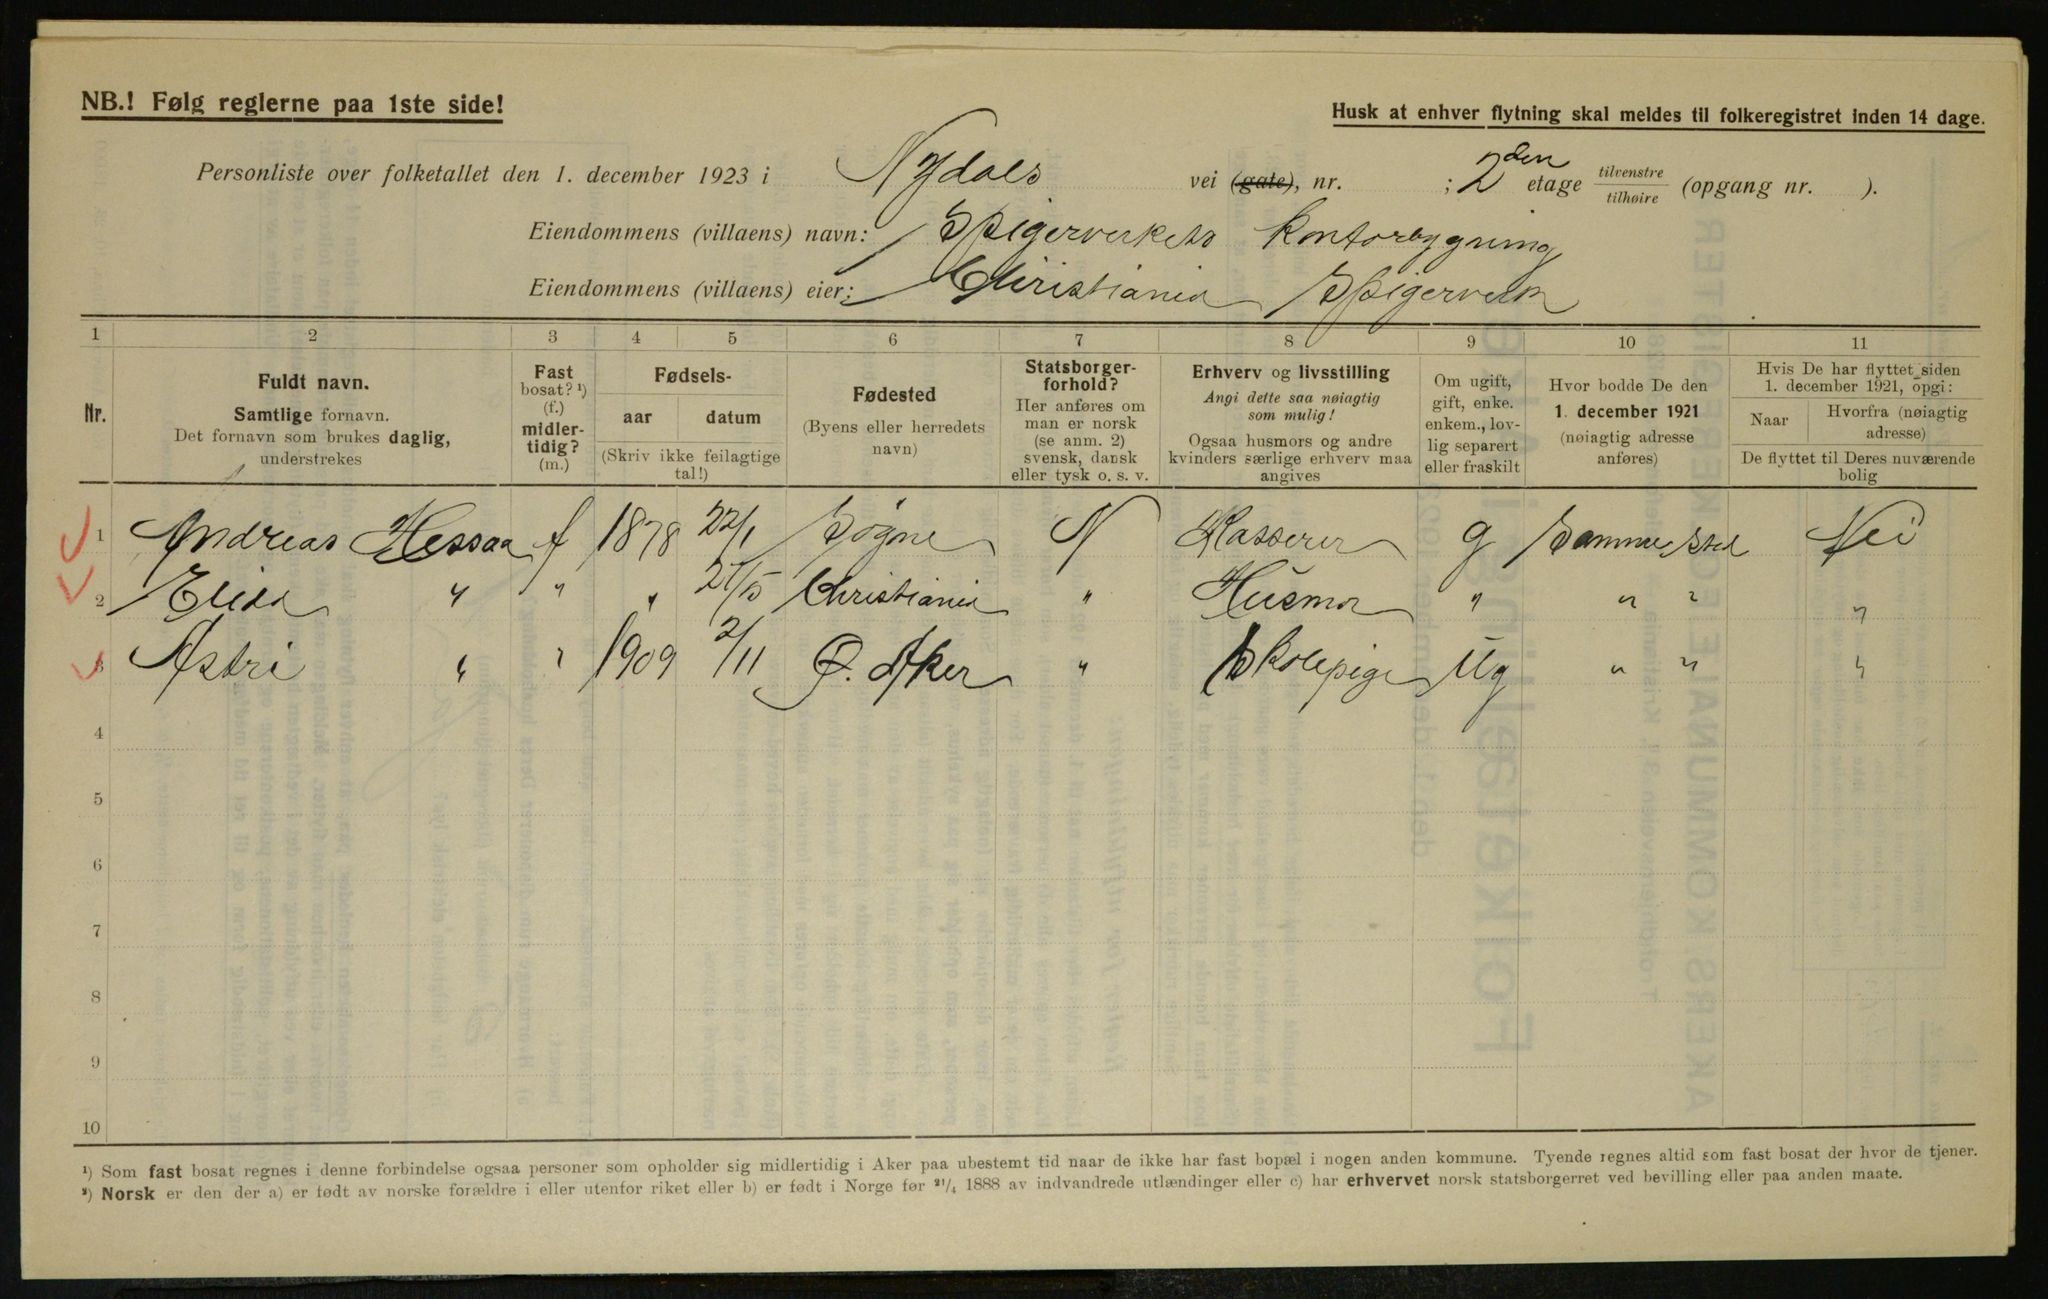 NB.! Følg reglerne paa 1ste side!
Husk at enhver flytning skal meldes til folkeregistret inden 14 dage.
Personliste over folketallet den 1. december 1923 i Nydals vei (gate), nr. ; 2den etage tilvenstre tilhøire (opgang nr. ).
Eiendommens (villaens) navn: Spigerverkets Kontorbygning
Eiendommens (villaens) eier: Christiania Spigerverk
1 2 3 4 5 6 7 8 9 10 11
Nr.
Fuldt navn.
Samtlige fornavn.
Det fornavn som brukes daglig,
understrekes
Fast
bosat? ¹)
(f.)
midler-
tidig?
(m.)
Fødsels-
aar datum
(Skriv ikke feilagtige
tal!)
Fødested
(Byens eller herredets
navn)
Statsborger-
forhold?
Her anføres om
man er norsk
(se anm. 2)
svensk, dansk
eller tysk o. s. v.
Erhverv og livsstilling
Angi dette saa nøiagtig
som mulig!
Ogsaa husmors og andre
kvinders særlige erhverv maa
angives
Om ugift,
gift, enke.
enkem., lov-
lig separert
eller fraskilt
Hvor bodde De den
1. december 1921
(nøiagtig adresse
anføres)
Hvis De har flyttet siden
1. december 1921, opgi:
Naar Hvorfra (nøiagtig
adresse)
De flyttet til Deres nuværende
bolig
1 Andreas Hessaa f 1878 22/1 Søgne N Kasserer g Samme sted Nei
2 Elida " " " 27/5 Christiania " Husmor " " " "
3 Astri " " 1909 2/11 Ø. Aker " Skolepige Ug " " "
4
5
6
7
8
9
10
¹) Som fast bosat regnes i denne forbindelse ogsaa personer som opholder sig midlertidig i Aker paa ubestemt tid naar de ikke har fast bopæl i nogen anden kommune. Tyende regnes altid som fast bosat der hvor de tjener.
²) Norsk er den der a) er født av norske forældre i eller utenfor riket eller b) er født i Norge før ²¹/₄ 1888 av indvandrede utlændinger eller c) har erhvervet norsk statsborgerret ved bevilling eller paa anden maate.